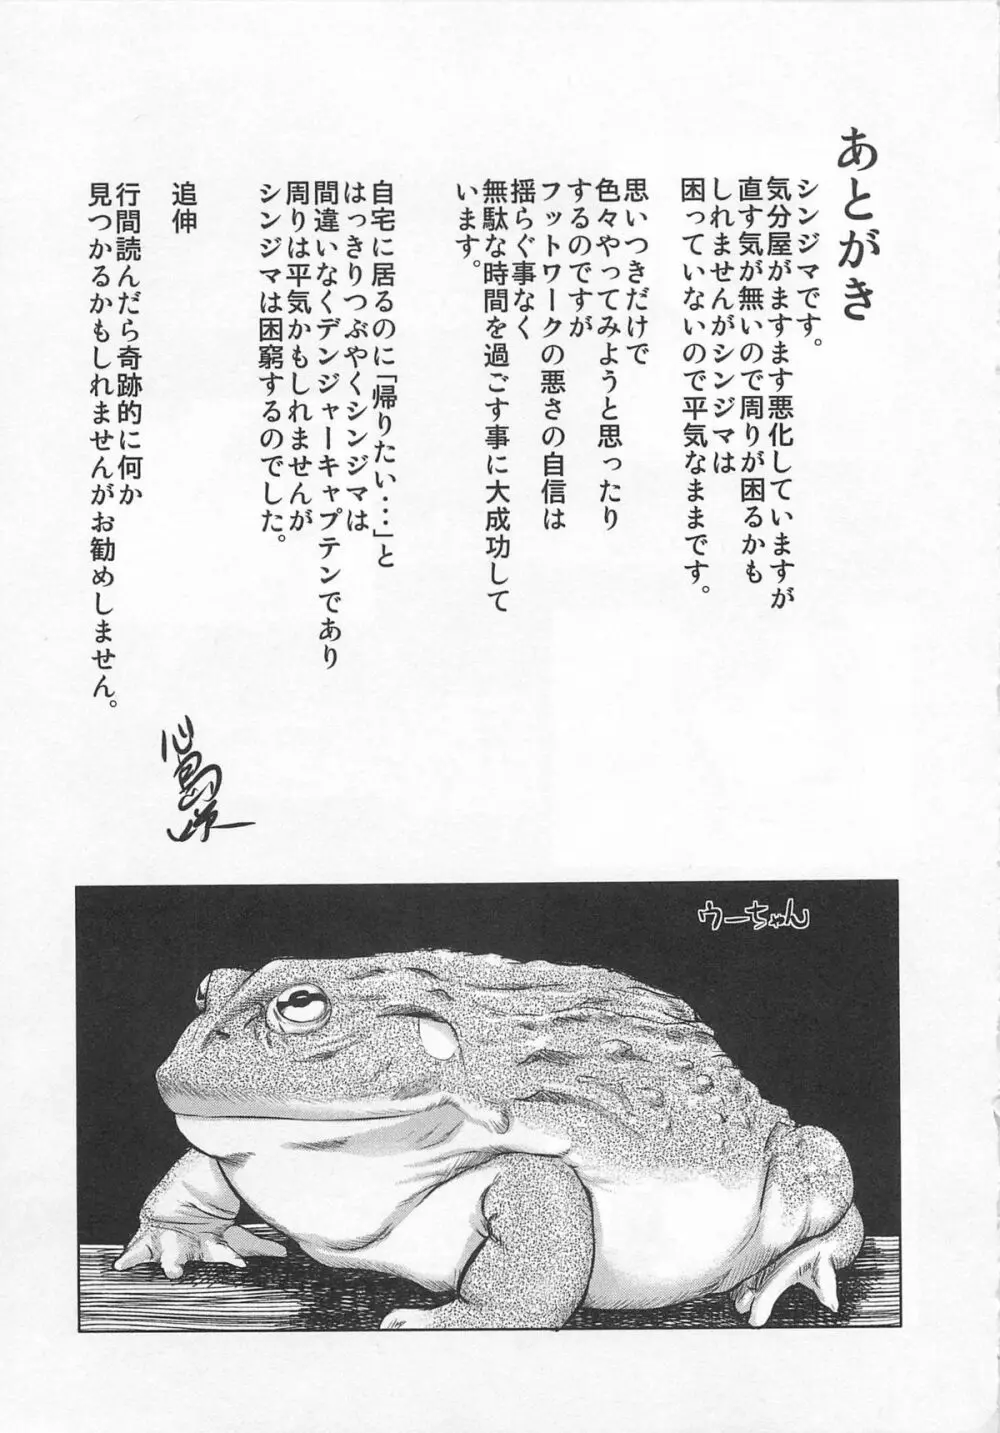 あとがき
シンジマです。
気分屋がますます悪化していますが
直す気が無いので周りが困るかも
しれませんがシンジマは
困っていないので平気なままです。
思いつきだけで
色々やってみようと思ったり
するのですが
フットワークの悪さの自信は
揺らぐ事なく
無駄な時間を過ごす事に大成功して
います。
自宅に居るのに「帰りたい・・・」と
はっきりつぶやくシンジマは
間違いなくデンジャーキャプテンであり
周りは平気かもしれませんが
シンジマは困窮するのでした。
追伸
行間読んだら奇跡的に何か
見つかるかもしれませんがお勧めしません。
ウーちゃん